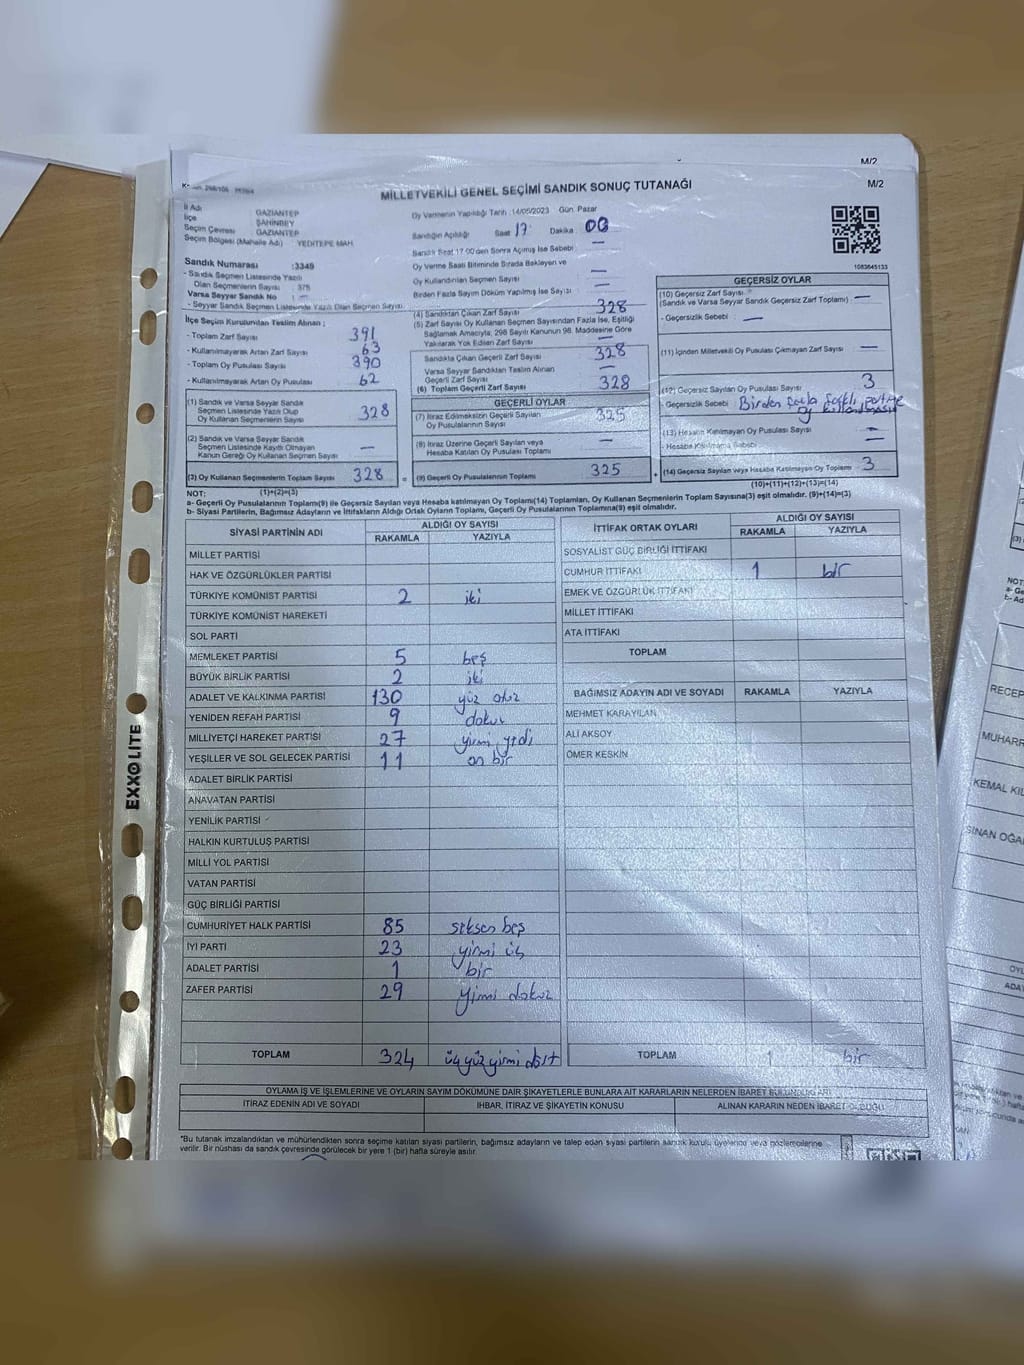 M/2
M/2
MİLLETVEKİLİ GENEL SEÇİMİ SANDIK SONUÇ TUTANAĞI
İl Adı GAZİANTEP
İlçe ŞAHİNBEY
Seçim Çevresi GAZİANTEP
Seçim Bölgesi (Mahalle Adı) YEDİTEPE MAH.
Oy Vermenin Yapıldığı Tarih :14/05/2023 Gün: Pazar
Sandığın Açıldığı Saat 17 Dakika 00
Sandık Saat 17:00'den Sonra Açılmış İse Sebebi: —
Oy Verme Saati Bitiminde Sırada Bekleyen ve
Oy Kullandırılan Seçmen Sayısı : —
Birden Fazla Sayım Döküm Yapılmış İse Sayısı : —
1083645133
Sandık Numarası :3349
- Sandık Seçmen Listesinde Yazılı
Olan Seçmenlerin Sayısı : 375
Varsa Seyyar Sandık No : —
- Seyyar Sandık Seçmen Listesinde Yazılı Olan Seçmen Sayısı:
İlçe Seçim Kurulundan Teslim Alınan ;
- Toplam Zarf Sayısı : 391
- Kullanılmayarak Artan Zarf Sayısı : 63
- Toplam Oy Pusulası Sayısı : 390
- Kullanılmayarak Artan Oy Pusulası : 62
(1) Sandık ve Varsa Seyyar Sandık
Seçmen Listesinde Yazılı Olup
Oy Kullanan Seçmenlerin Sayısı : 328
(2) Sandık ve Varsa Seyyar Sandık
Seçmen Listesinde Kayıtlı Olmayan
Kanun Gereği Oy Kullanan Seçmen Sayısı : —
(3) Oy Kullanan Seçmenlerin Toplam Sayısı : 328
(1)+(2)=(3)
(4) Sandıktan Çıkan Zarf Sayısı : 328
(5) Zarf Sayısı Oy Kullanan Seçmen Sayısından Fazla İse, Eşitliği
Sağlamak Amacıyla, 298 Sayılı Kanunun 98. Maddesine Göre
Yakılarak Yok Edilen Zarf Sayısı : —
Sandıkta Çıkan Geçerli Zarf Sayısı : 328
Varsa Seyyar Sandıktan Teslim Alınan
Geçerli Zarf Sayısı : —
(6) Toplam Geçerli Zarf Sayısı : 328
GEÇERLİ OYLAR
(7) İtiraz Edilmeksizin Geçerli Sayılan
Oy Pusulasının Sayısı : 325
(8) İtiraz Üzerine Geçerli Sayılan veya
Hesaba Katılan Oy Pusulası Toplamı : —
(9) Geçerli Oy Pusulalarının Toplamı : 325
GEÇERSİZ OYLAR
(10) Geçersiz Zarf Sayısı
(Sandık ve Varsa Seyyar Sandık Geçersiz Zarf Toplamı) : —
- Geçersizlik Sebebi : —
(11) İçinden Milletvekili Oy Pusulası Çıkmayan Zarf Sayısı : —
(12) Geçersiz Sayılan Oy Pusulası Sayısı : 3
- Geçersizlik Sebebi : Birden fazla farklı partiye
oy kullanılması
(13) Hesaba Katılmayan Oy Pusulası Sayısı : —
- Hesaba Katılmama Sebebi : —
(14) Geçersiz Sayılan veya Hesaba Katılmayan Oy Toplamı : 3
(10)+(11)+(12)+(13)=(14)
NOT:
a- Geçerli Oy Pusulalarının Toplamı(9) ile Geçersiz Sayılan veya Hesaba katılmayan Oy Toplam(14) Toplamları, Oy Kullanan Seçmenlerin Toplam Sayısına(3) eşit olmalıdır. (9)+(14)=(3)
b- Siyasi Partilerin, Bağımsız Adayların ve İttifakların Aldığı Ortak Oyların Toplamı, Geçerli Oy Pusulalarının Toplamına(9) eşit olmalıdır.
SİYASİ PARTİNİN ADI ALDIĞI OY SAYISI
RAKAMLA YAZIYLA
MİLLET PARTİSİ
HAK VE ÖZGÜRLÜKLER PARTİSİ
TÜRKİYE KOMÜNİST PARTİSİ 2 iki
TÜRKİYE KOMÜNİST HAREKETİ
SOL PARTİ
MEMLEKET PARTİSİ 5 beş
BÜYÜK BİRLİK PARTİSİ 2 iki
ADALET VE KALKINMA PARTİSİ 130 yüz otuz
YENİDEN REFAH PARTİSİ 9 dokuz
MİLLİYETÇİ HAREKET PARTİSİ 27 yirmi yedi
YEŞİLLER VE SOL GELECEK PARTİSİ 11 on bir
ADALET BİRLİK PARTİSİ
ANAVATAN PARTİSİ
YENİLİK PARTİSİ
HALKIN KURTULUŞ PARTİSİ
MİLLİ YOL PARTİSİ
VATAN PARTİSİ
GÜÇ BİRLİĞİ PARTİSİ
CUMHURİYET HALK PARTİSİ 85 seksen beş
İYİ PARTİ 23 yirmi üç
ADALET PARTİSİ 1 bir
ZAFER PARTİSİ 29 yirmi dokuz
TOPLAM 324 üçyüzyirmi dört
İTTİFAK ORTAK OYLARI ALDIĞI OY SAYISI
RAKAMLA YAZIYLA
SOSYALİST GÜÇ BİRLİĞİ İTTİFAKI
CUMHUR İTTİFAKI 1 bir
EMEK VE ÖZGÜRLÜK İTTİFAKI
MİLLET İTTİFAKI
ATA İTTİFAKI
TOPLAM
BAĞIMSIZ ADAYIN ADI VE SOYADI RAKAMLA YAZIYLA
MEHMET KARAYILAN
ALİ AKSOY
ÖMER KESKİN
TOPLAM 1 bir
OYLAMA İŞ VE İŞLEMLERİNE VE OYLARIN SAYIM DÖKÜMÜNE DAİR ŞİKAYETLERLE BUNLARA AİT KARARLARIN NELERDEN İBARET BULUNDUKLARI
İTİRAZ EDENİN ADI VE SOYADI İHBAR, İTİRAZ VE ŞİKAYETİN KONUSU ALINAN KARARIN NEDEN İBARET OLDUĞU
*Bu tutanak imzalandıktan ve mühürlendikten sonra seçime katılan siyasi partilerin, bağımsız adayların ve talep eden siyasi partilerin sandık kurulu üyelerine veya gözlemcilerine
verilir. Bir nüshası da sandık çevresinde görülecek bir yere 1 (bir) hafta süreyle asılır.
EXXO LITE
NOT
RECEP
MUHARR
KEMAL KIL
SİNAN OĞA